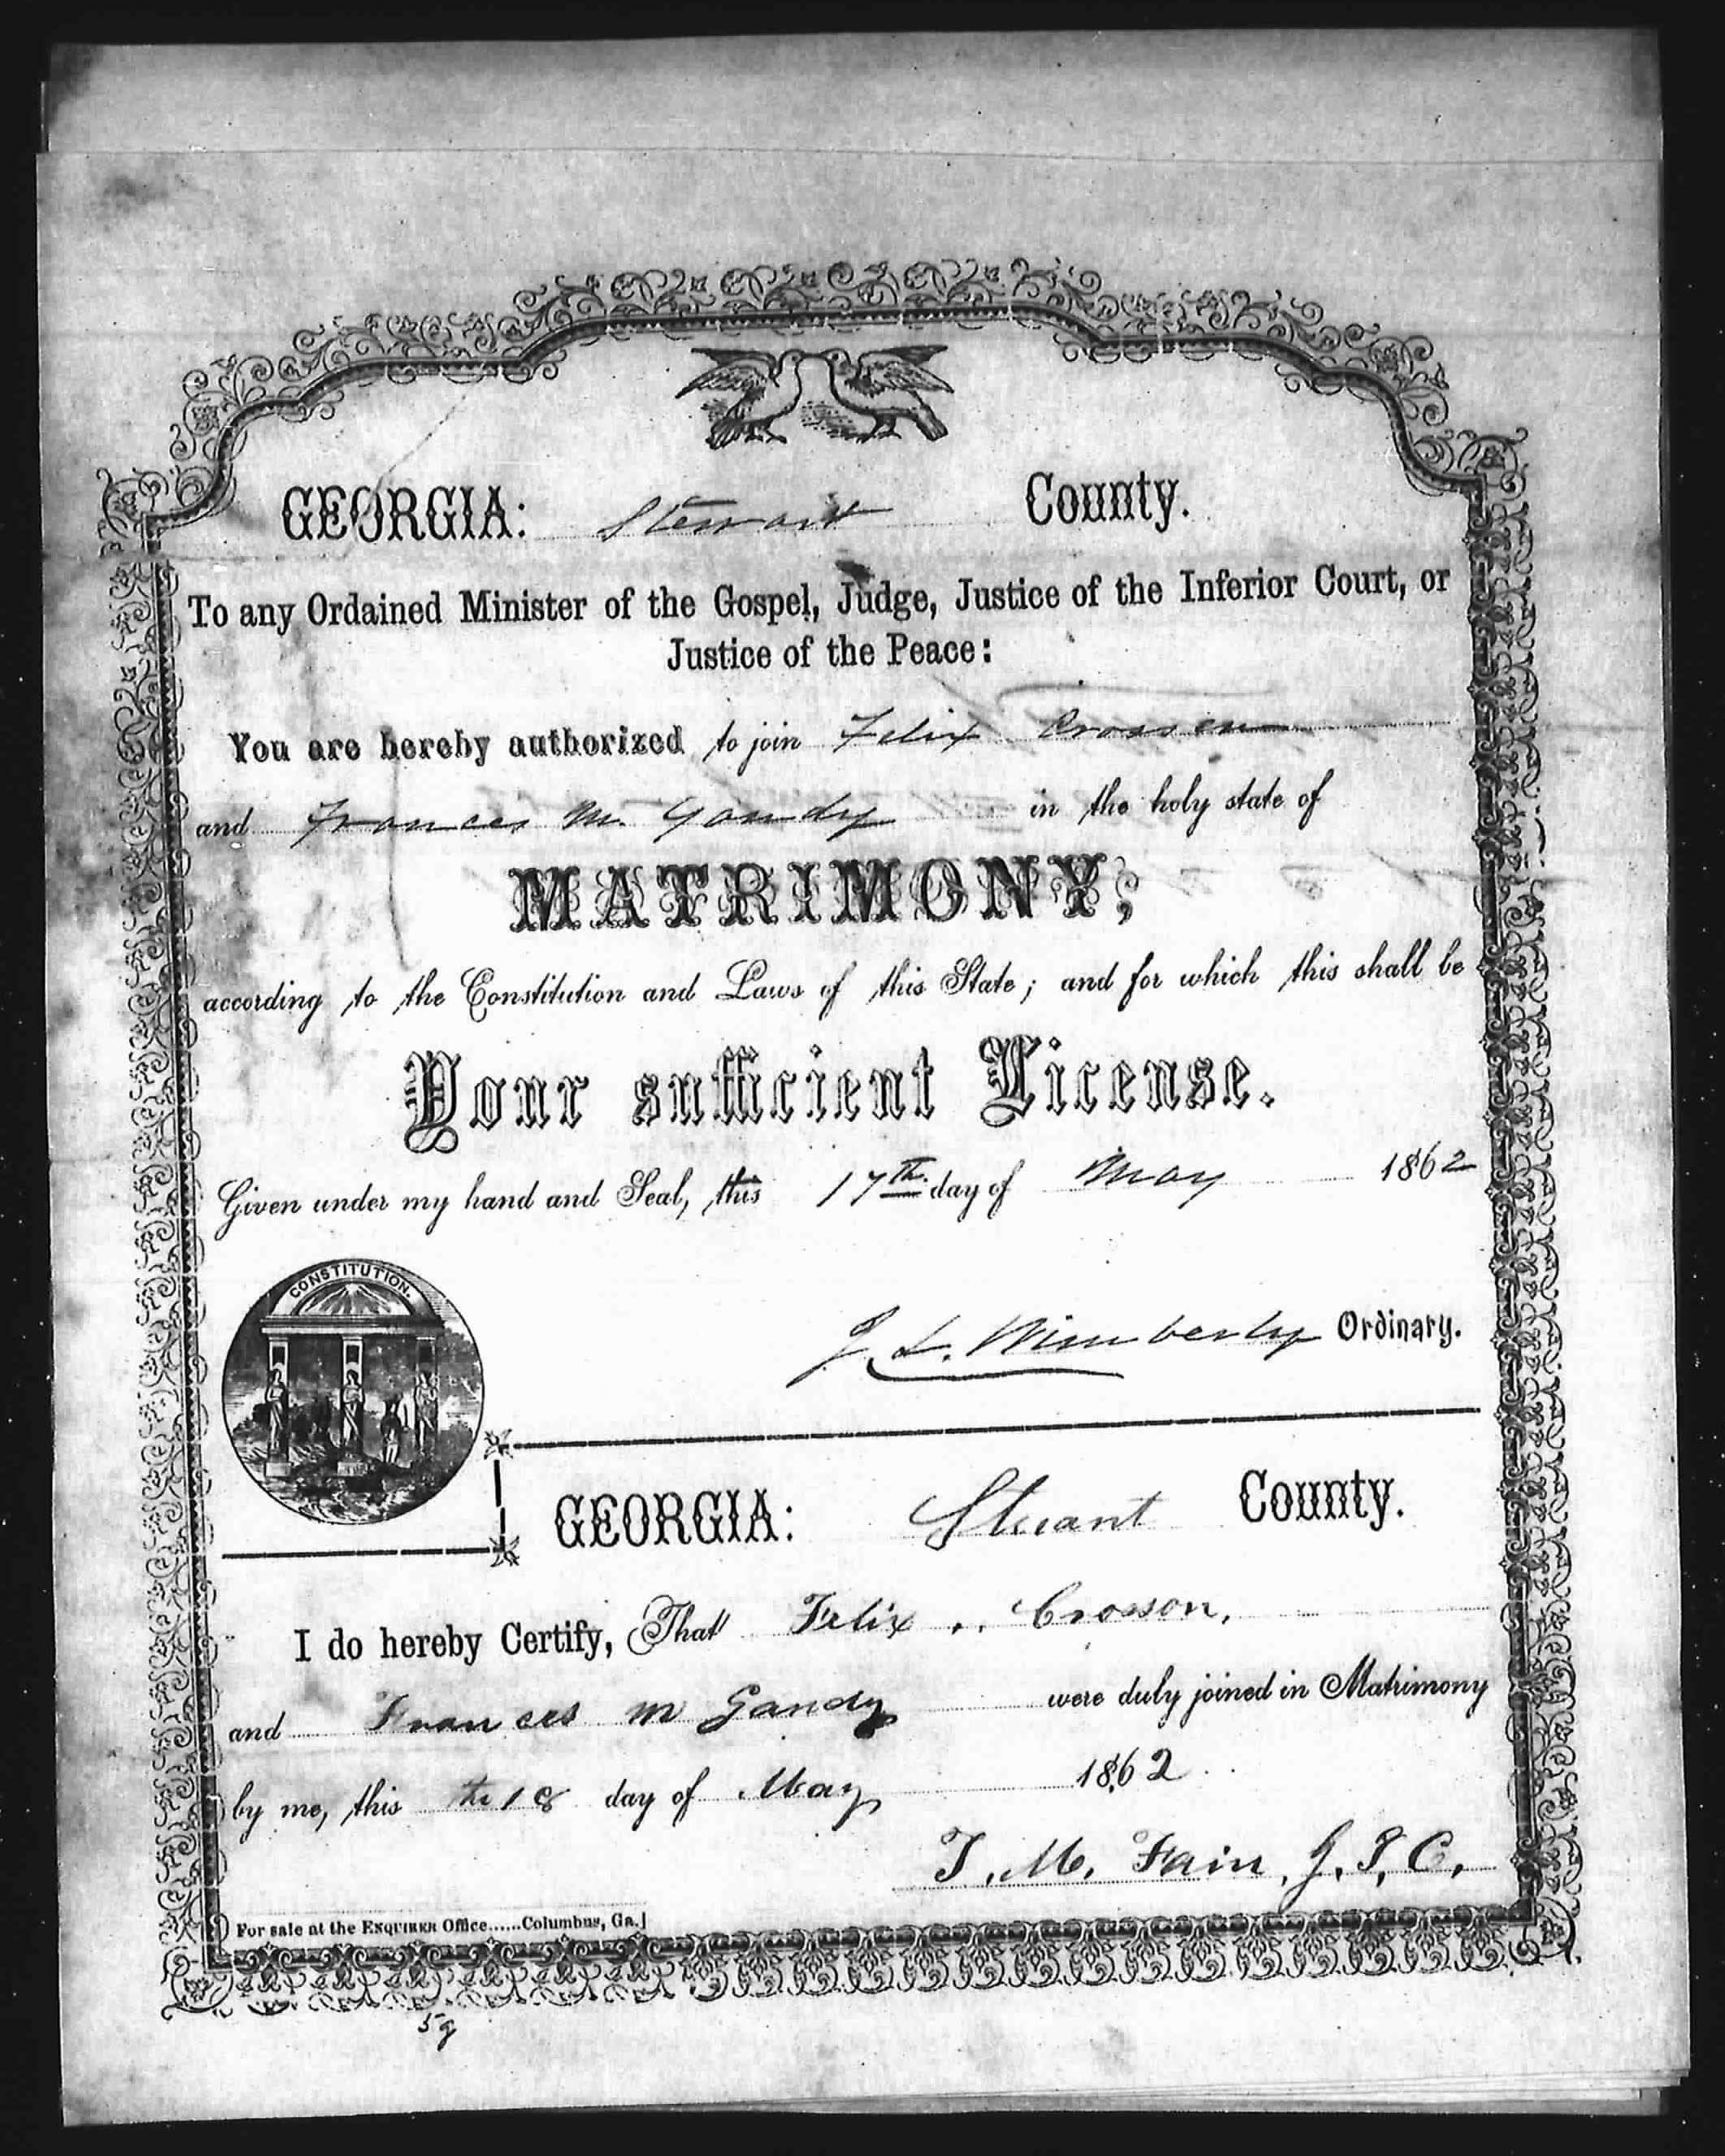 GEORGIA: Stewart County.
To any Ordained Minister of the Gospel, Judge, Justice of the Inferior Court, or
Justice of the Peace:
You are hereby authorized to join Felix Crossen
and Frances M. Gandy in the holy state of
MATRIMONY;
according to the Constitution and Laws of this State; and for which this shall be
Your sufficient License.
Given under my hand and Seal, this 17th day of May 1862
CONSTITUTION.
J. L. Wimberly Ordinary.
GEORGIA: Steuart County.
I do hereby Certify, That Felix .. Crosson,
and Frances m Gandy were duly joined in Matrimony
by me, this the 18 day of May 1862
T. M. Fain, J. I. C.
For sale at the ENQUIRER Office......Columbus, Ga.]